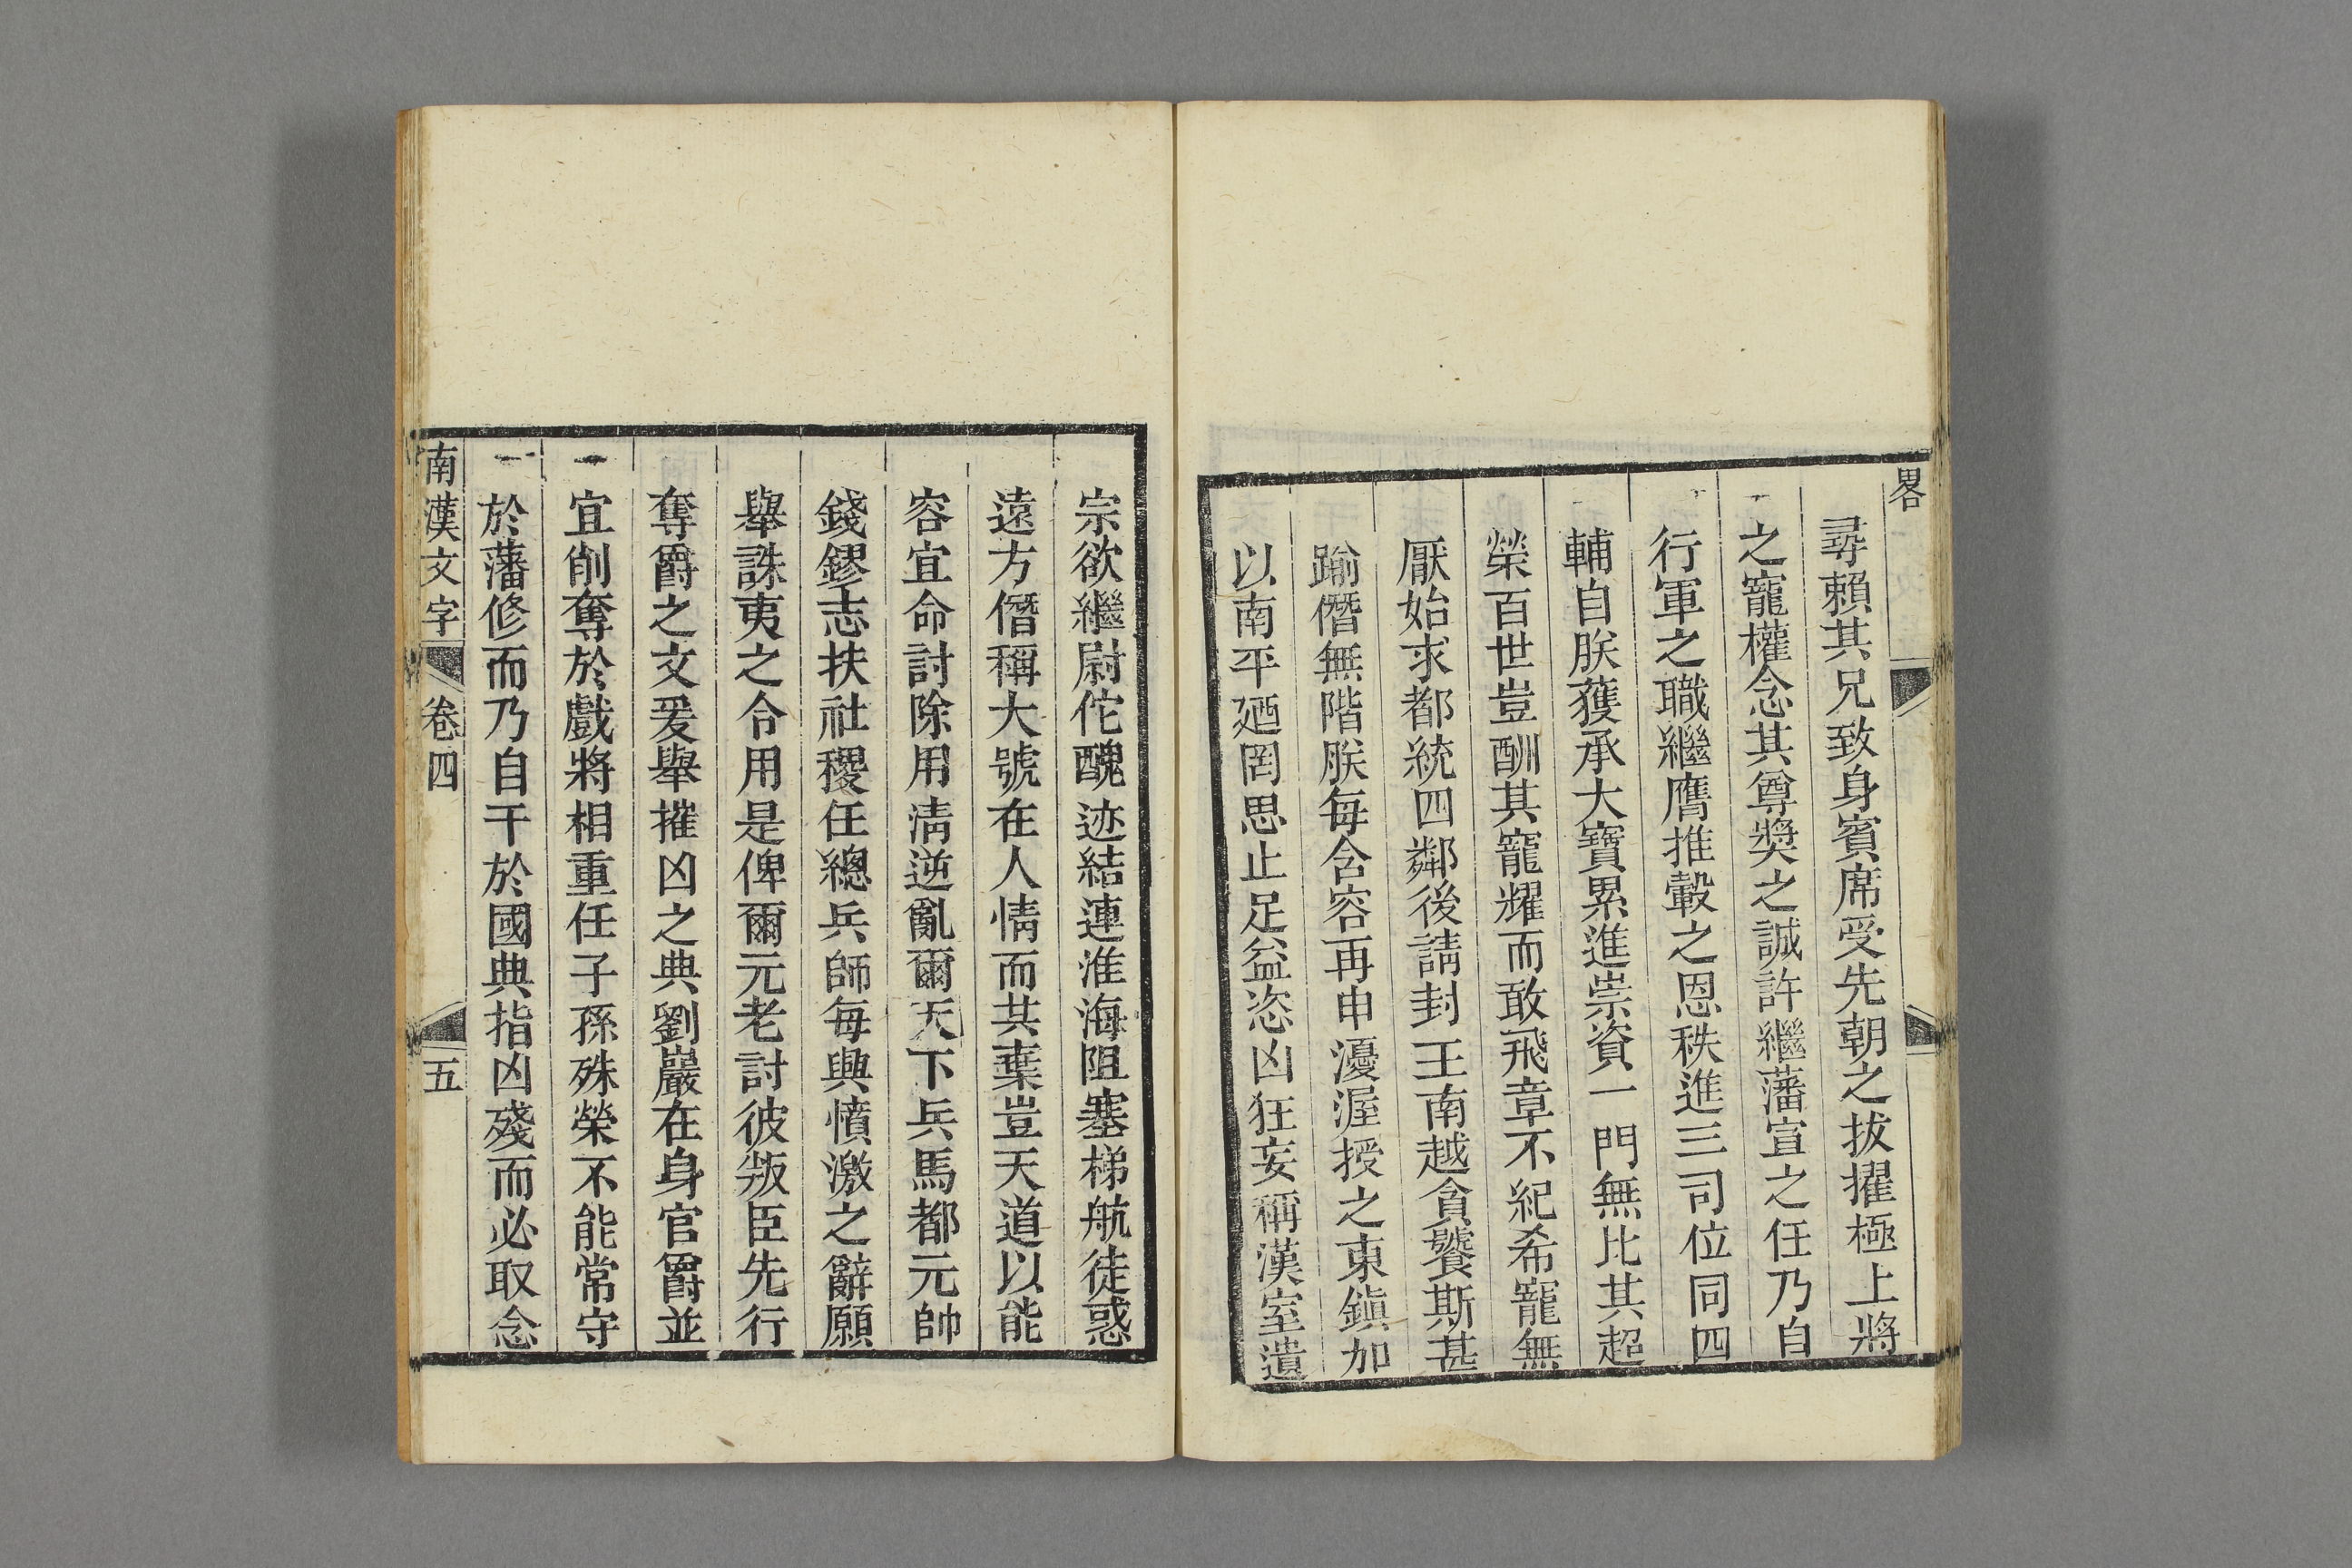 畧
尋賴其兄致身賓席受先朝之拔擢極上將
之寵權念其尊奬之誠許繼藩宣之任乃自
行軍之職繼膺推轂之恩秩進三司位同四
輔自朕獲承大寶累進崇資一門無比其超
榮百世豈酬其寵耀而敢飛章不紀希寵無
厭始求都統四鄰後請封王南越貪饕斯甚
踰僭無階朕每含容再申瀀渥授之東鎭加
以南平廼罔思止足益恣凶狂妄稱漢室遺
宗欲繼尉佗醜迹結連淮海阻塞梯航徒惑
遠方僭稱大號在人情而共棄豈天道以能
容宜命討除用淸逆亂爾天下兵馬都元帥
錢鏐志扶社稷任總兵師每興憤激之辭願
舉誅夷之令用是俾爾元老討彼叛臣先行
奪爵之文爰舉摧凶之典劉巖在身官爵並
宜削奪於戲將相重任子孫殊榮不能常守
於藩修而乃自干於國典指凶殘而必取念
南漢文字 卷四 五